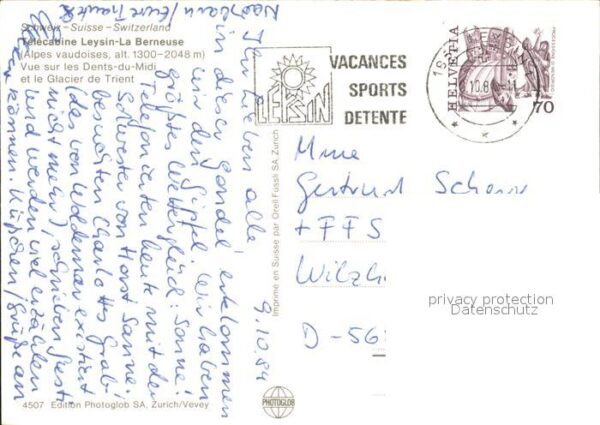 Schweiz – Suisse – Switzerland
Télécabine Leysin-La Berneuse
(Alpes vaudoises, alt. 1300-2048 m)
Vue sur les Dents-du-Midi
et le Glacier de Trient
9.10.84
Ihr Lieben alle
in dieser Gondel erklommen
wir den Gipfel. Wir haben
größtes Wetterglück: Sonne!
Telefonierten heute mit der
Schwester von Horst Sanne.
besuchten Charlottes Grab,
(das von Woldemar existiert
nicht mehr), schrieben
und werden viel erzählen
können. Küßchen / Grüße an
LEYSIN
VACANCES
SPORTS
DETENTE
HELVETIA
70
Mme
Gertrud
D-56
Imprimé en Suisse par Orell Füssli SA, Zurich
privacy protection
Datenschutz
4507 Edition Photoglob SA, Zurich/Vevey
PHOTOGLOB